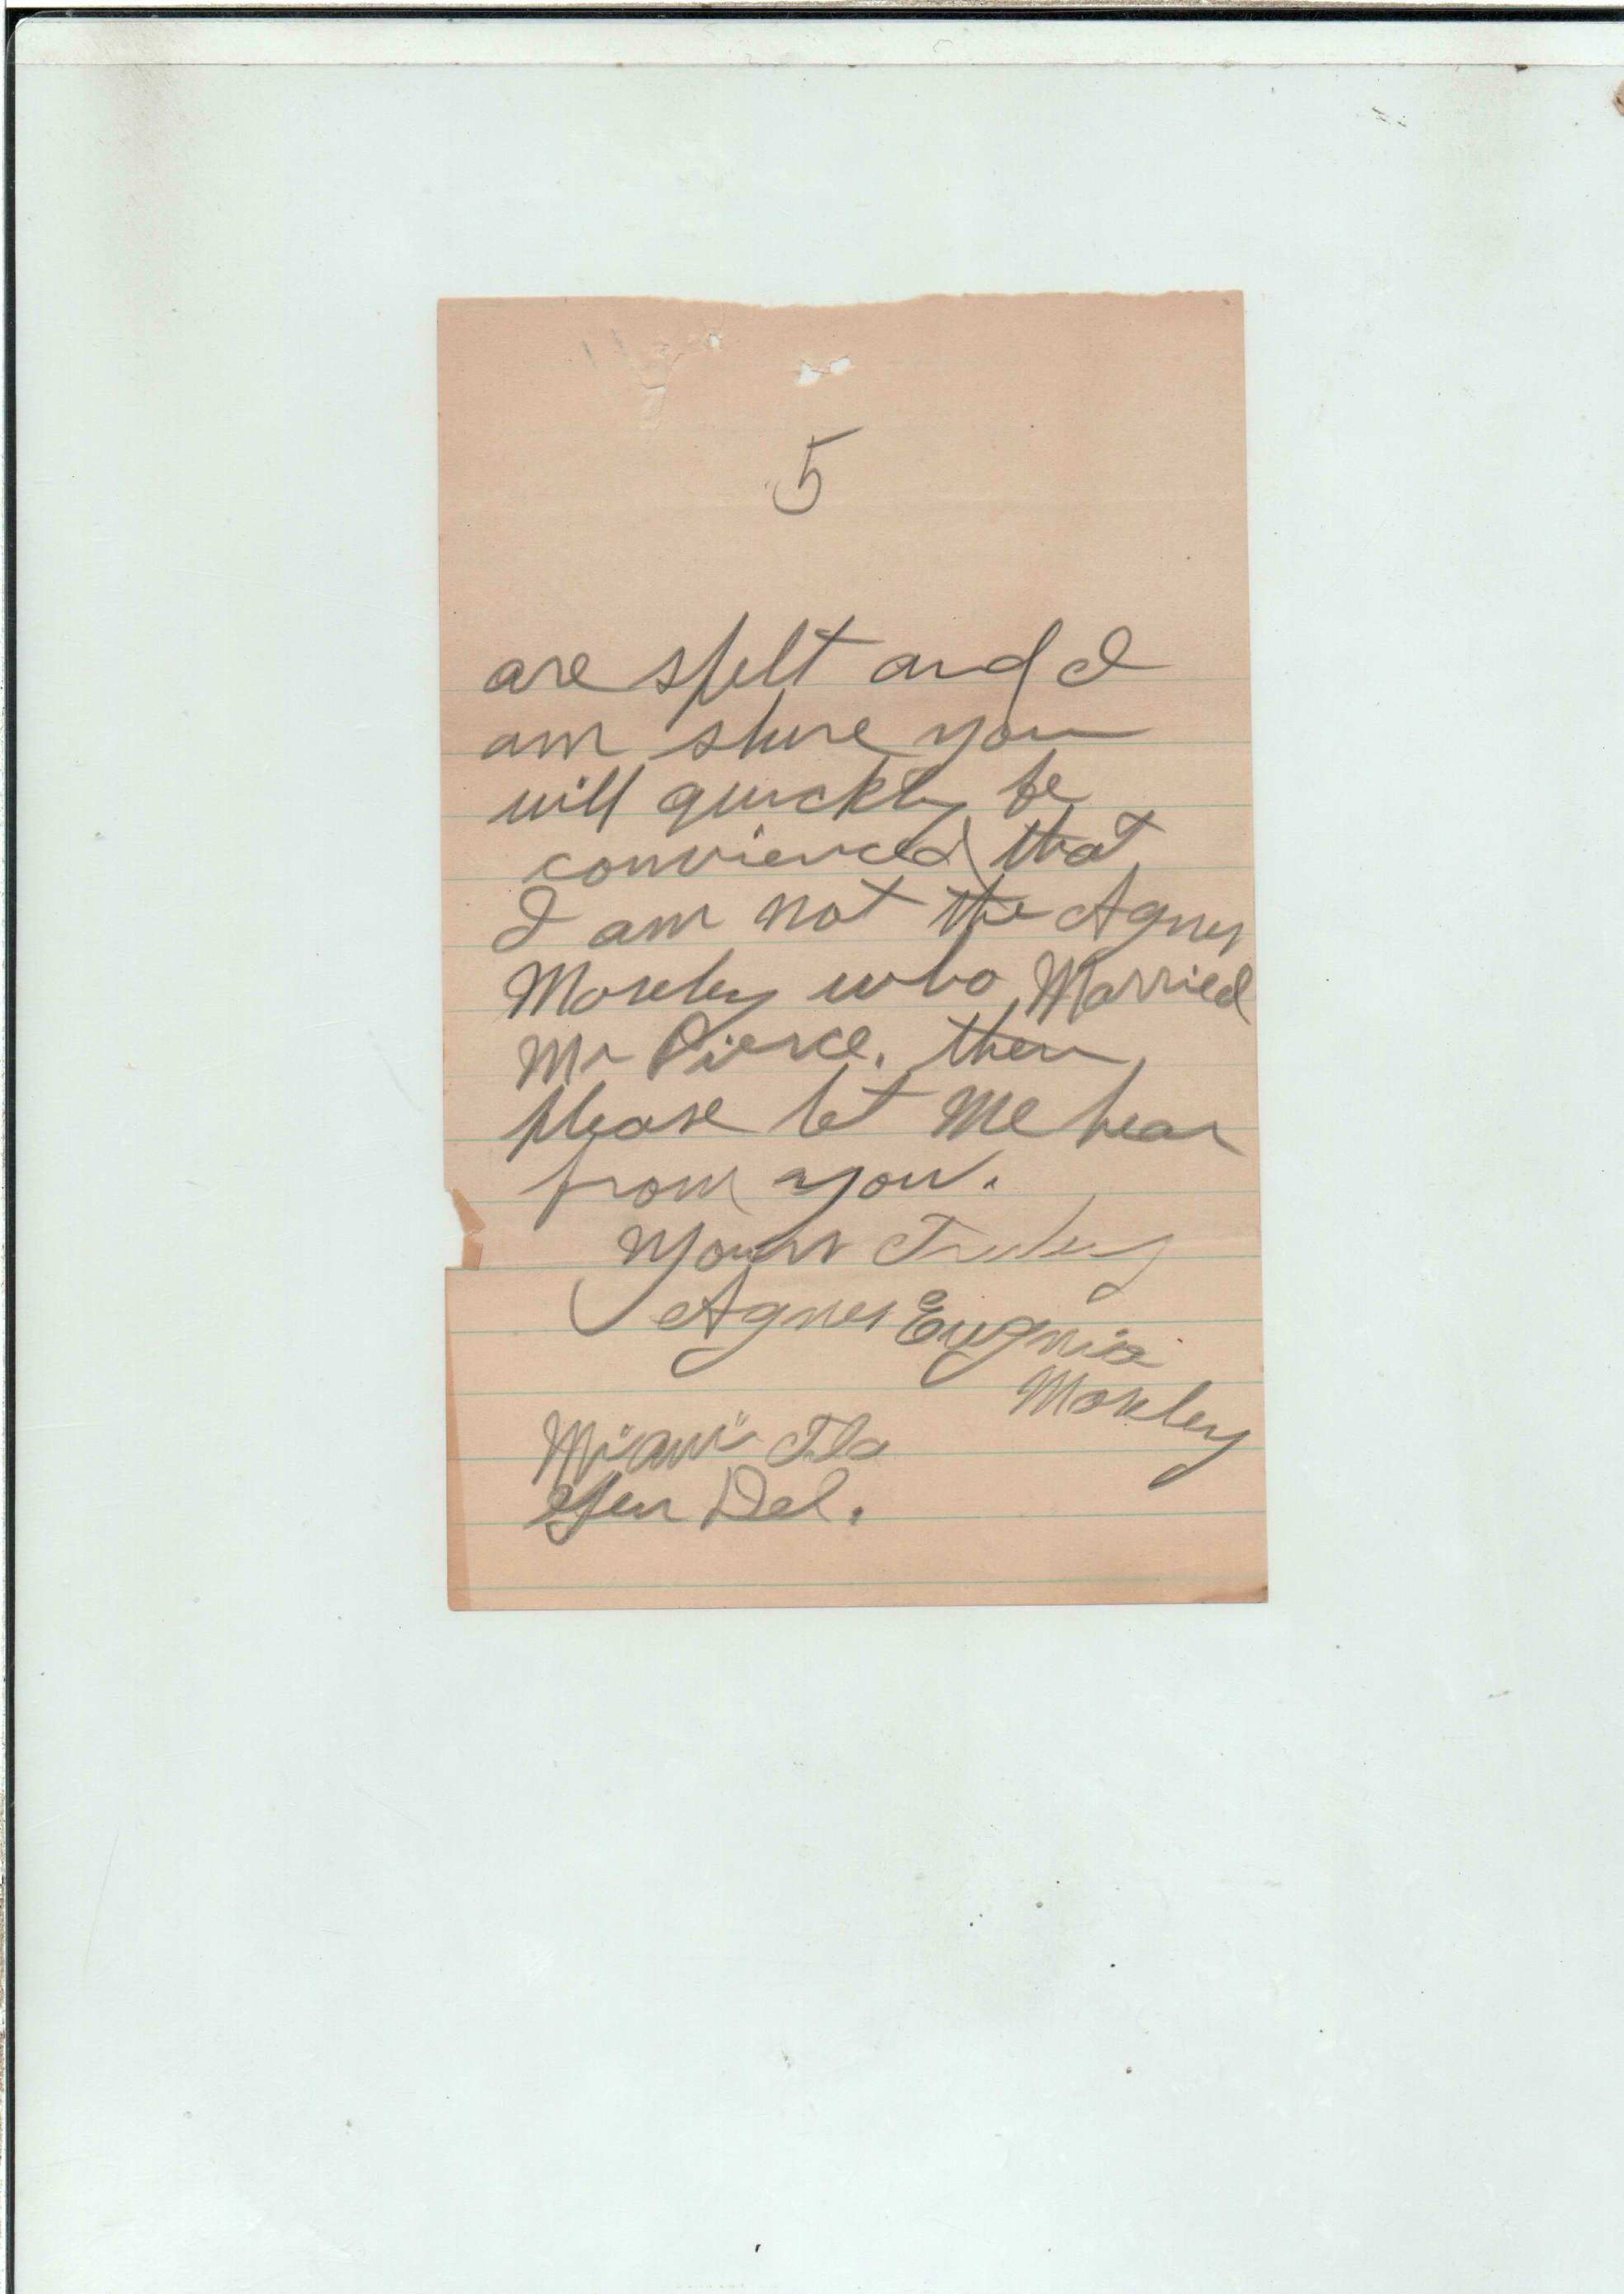 5
are spelt and I
am shure you
will quickly be
convienced that
I am not the Agnes
Moseley who Married
Mr Pierce. then
please let Me hear
from you.
Yours Truley
Agnes Eugnia
Moseley
Miami Fla
Gen Del.